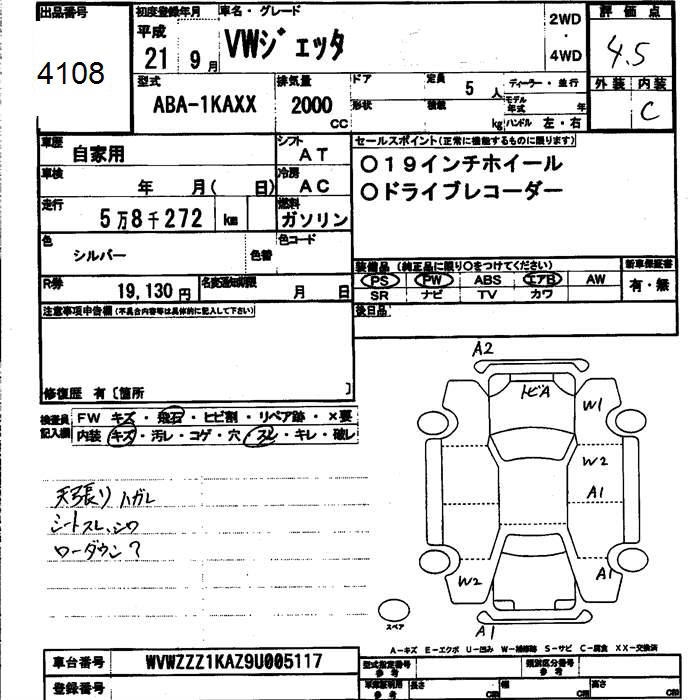 出品番号
4108
初度登録年月
平成
21 9月
車名・グレード
VWジェッタ
2WD
・
4WD
評価点
4.5
外装 内装
C
型式
ABA-1KAXX
排気量
2000
CC
ドア
定員
5 人
形状
積載
kg
ディーラー・並行
モデル年式 年
ハンドル 左・右
車歴
自家用
シフト
AT
車検
年 月( 日)
冷房
AC
走行
5万8千272 km
燃料
ガソリン
色
シルバー
色替
色コード
R券
19,130円
名変通知期限
月 日
セールスポイント(正常に機能するものに限ります)
○19インチホイール
○ドライブレコーダー
装備品(純正品に限り○をつけてください)
PS PW ABS エアB AW
SR ナビ TV カワ
新車保証書
有・無
後日品
注意事項申告欄(不具合内容等は具体的に記入して下さい)
修復歴 有〔箇所 〕
検査員
記入欄
FW キズ・飛石・ヒビ割・リペア跡・×要
内装 キズ・汚レ・コゲ・穴・スレ・キレ・破レ
天張りハガレ
シートスレ、シワ
ローダウン?
A2
トビA
W1
W2
A1
W2
A1
A1
スペア
A-キズ E-エクボ U-凹み W-補修跡 S-サビ C-腐食 XX-交換済
車台番号
WVWZZZ1KAZ9U005117
登録番号
型式指定番号
参考
類別区分番号
参考
車庫証明用
参考
長さ
cm
幅
cm
高さ
cm